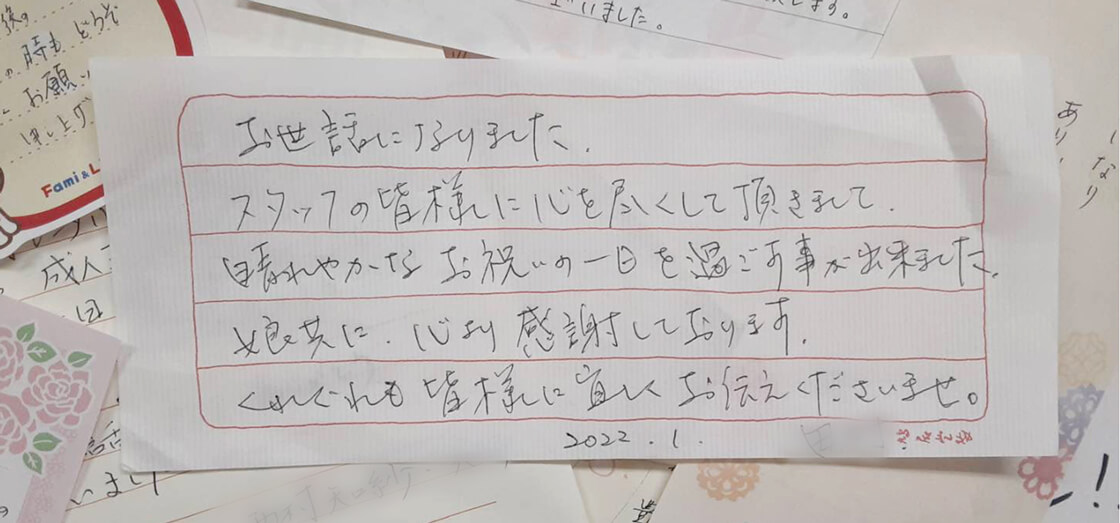 お世話になりました.
スタッフの皆様に心を尽くして頂きまして.
晴れやかなお祝いの一日を過ごす事が出来ました.
娘共に.心より感謝しております.
くれぐれも皆様に宜しくお伝えくださいませ。
2022.1.
時も どうぞ
お願い
申し上げ
Fami & L
いました。
ます。
成人
います